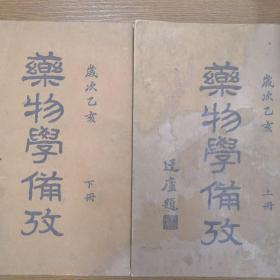 歲次乙亥
藥物學備攷
下冊
歲次乙亥
藥物學備攷
上冊